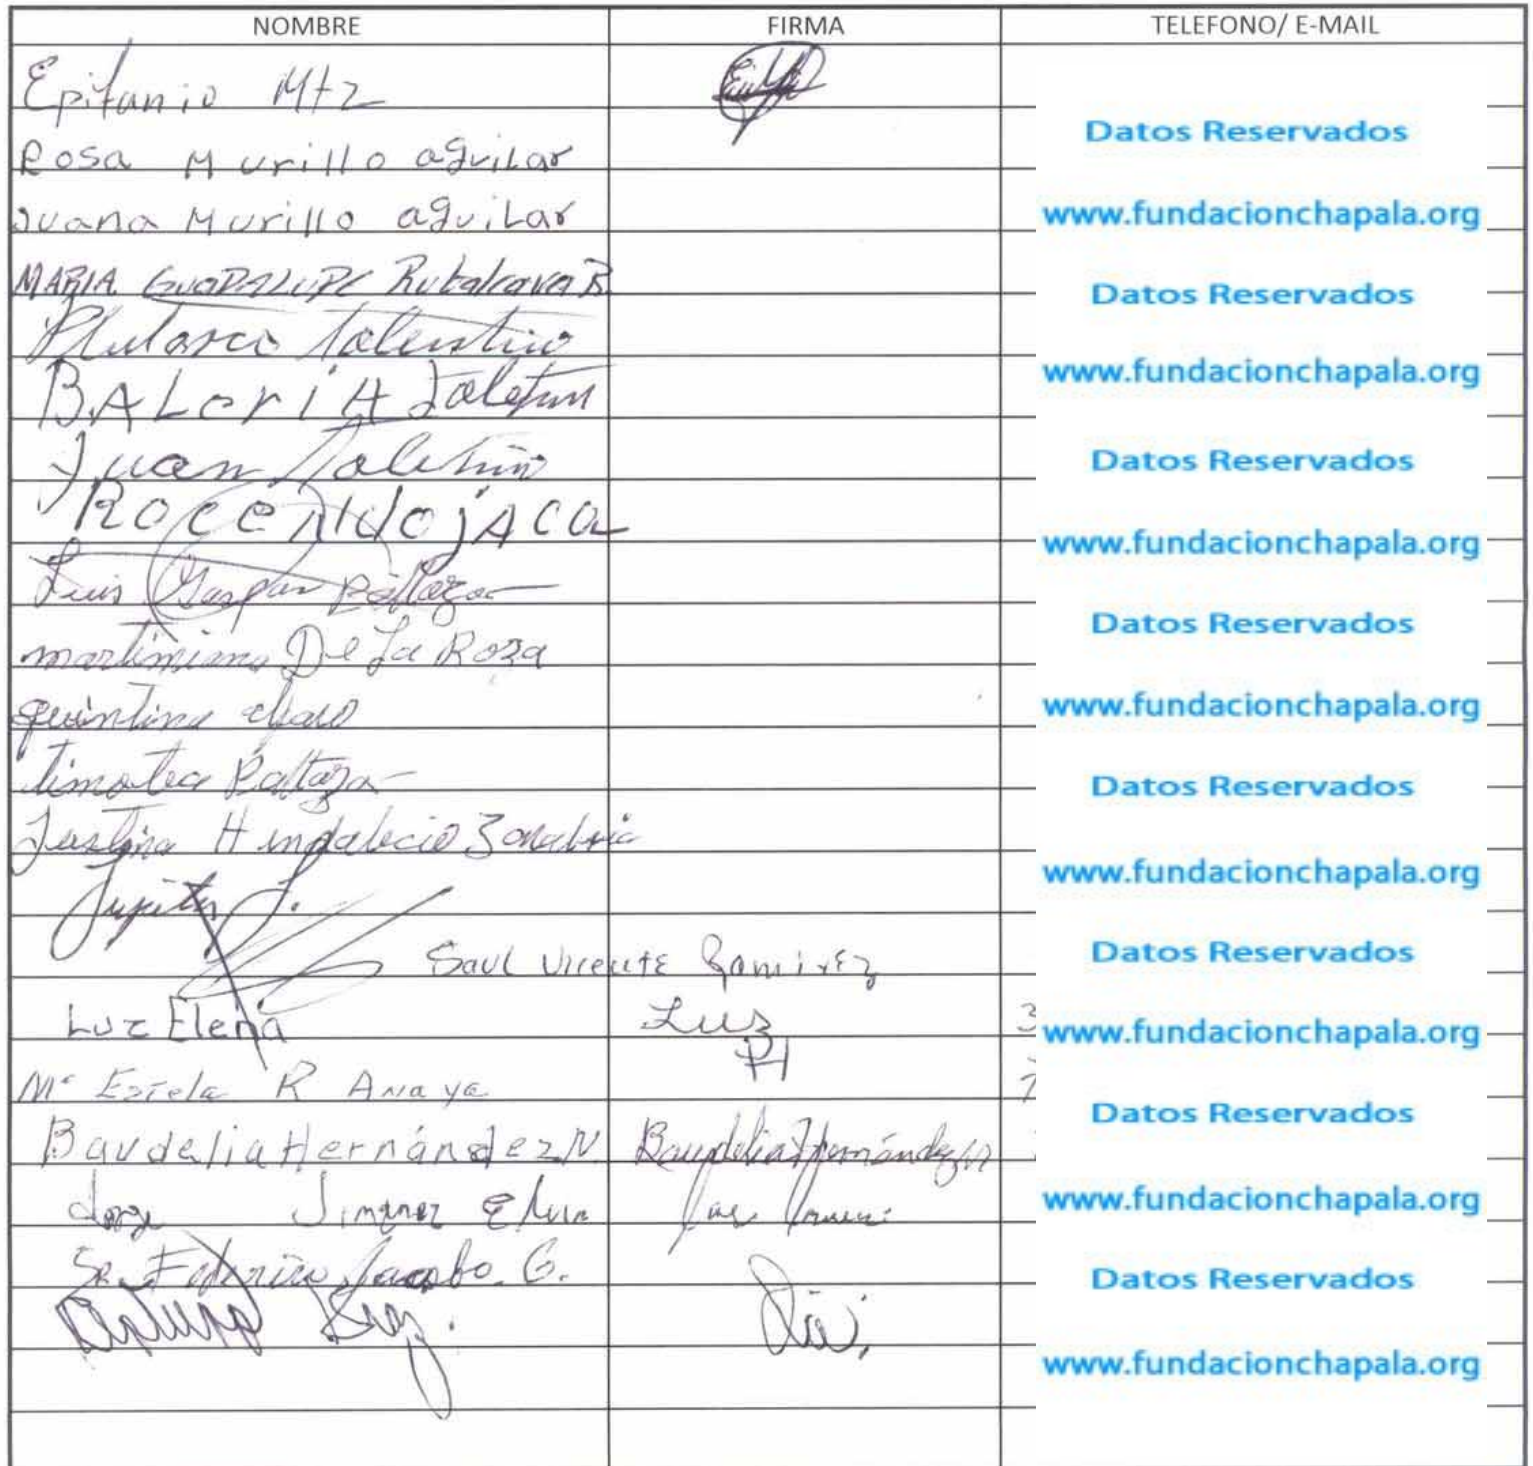 NOMBRE FIRMA TELEFONO/ E-MAIL
Epifanio Mtz
Datos Reservados
Rosa Murillo aguilar
Juana Murillo aguilar
www.fundacionchapala.org
MARIA GUADALUPE Rubalcava R.
Datos Reservados
Plutarco Tolentino
www.fundacionchapala.org
BALeriA
Juan
Datos Reservados
ROCENdojACA
www.fundacionchapala.org
Luis Gaspar Baltazar
Datos Reservados
martiniano De La Roza
quintina
www.fundacionchapala.org
timotea Baltazar
Datos Reservados
Justina H
www.fundacionchapala.org
Saul Vicente Ramirez
Datos Reservados
Luz Elena Luz
www.fundacionchapala.org
Ma Estela R Anaya
Datos Reservados
Baudelia Hernández N. Baudelia Hernández N
Jorge Jimenez
www.fundacionchapala.org
Sr. Federico Jacobo. G.
Datos Reservados
www.fundacionchapala.org